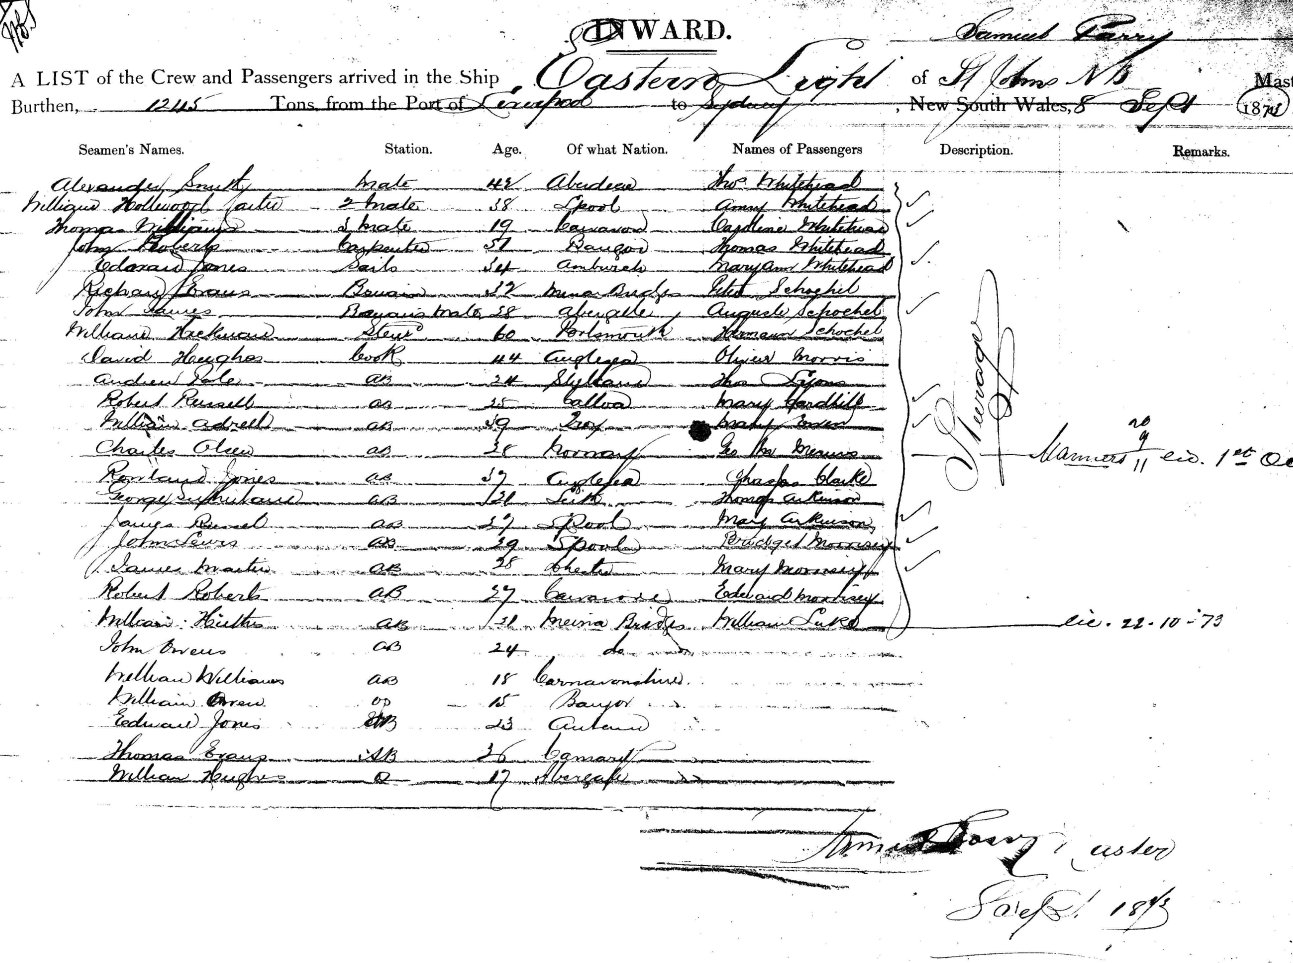 INWARD.
Samuel Parry
A LIST of the Crew and Passengers arrived in the Ship Eastern Light of St Johns NB Mast
Burthen, 1245 Tons, from the Port of Liverpool to Sydney, New South Wales, 8 Sept 1873
Seamen's Names. Station. Age. Of what Nation. Names of Passengers Description. Remarks.
Alexander Smith Mate 42 Aberdeen Thos Whitehead
William Hollewood Carter 2 Mate 38 Lpool Whitehead
Thomas Williams 3 Mate 19 Carnarvon Caroline Whitehead
John Roberts Carpenter 51 Bangor Thomas Whitehead
Edward Jones Sails 34 Amlwch Mary Ann Whitehead
Richard Evans 32 Menai Bridge Schochel
John James Mate 28 Abergele Auguste Schochel
William Stew 60 Portsmouth Hermann Schochel
David Hughes Cook 44 Anglesea Oliver Morris
Andrew AB 24 Thos Lyons
Robert Russell AB 25 Mary
William AB 39 Mary
Charles Olsen AB 28 Norway Geo
Rowland Jones AB 37 Anglesea Chas Clarke
George Sutherland AB 21 Leith Thomas Atkinson
James Russel AB 27 Lpool Mary Atkinson
John Lewis AB 29 Lpool Bridget Morrisey
James Martin AB 28 Chester Mary Morrisey
Robert Roberts AB 27 Edward Morrisey
William AB 21 Menai Bridge William Luke
John Owens AB 24 do
William Williams AB 18 Carnarvonshire
William Owen OS 15 Bangor
Edward Jones AB 23
Thomas Evans AB 26
William Hughes O 17 Abergele
Steerage
Manners 20 9 11 1st Oc
22-10-73
Samuel Parry Master
Sept 1873